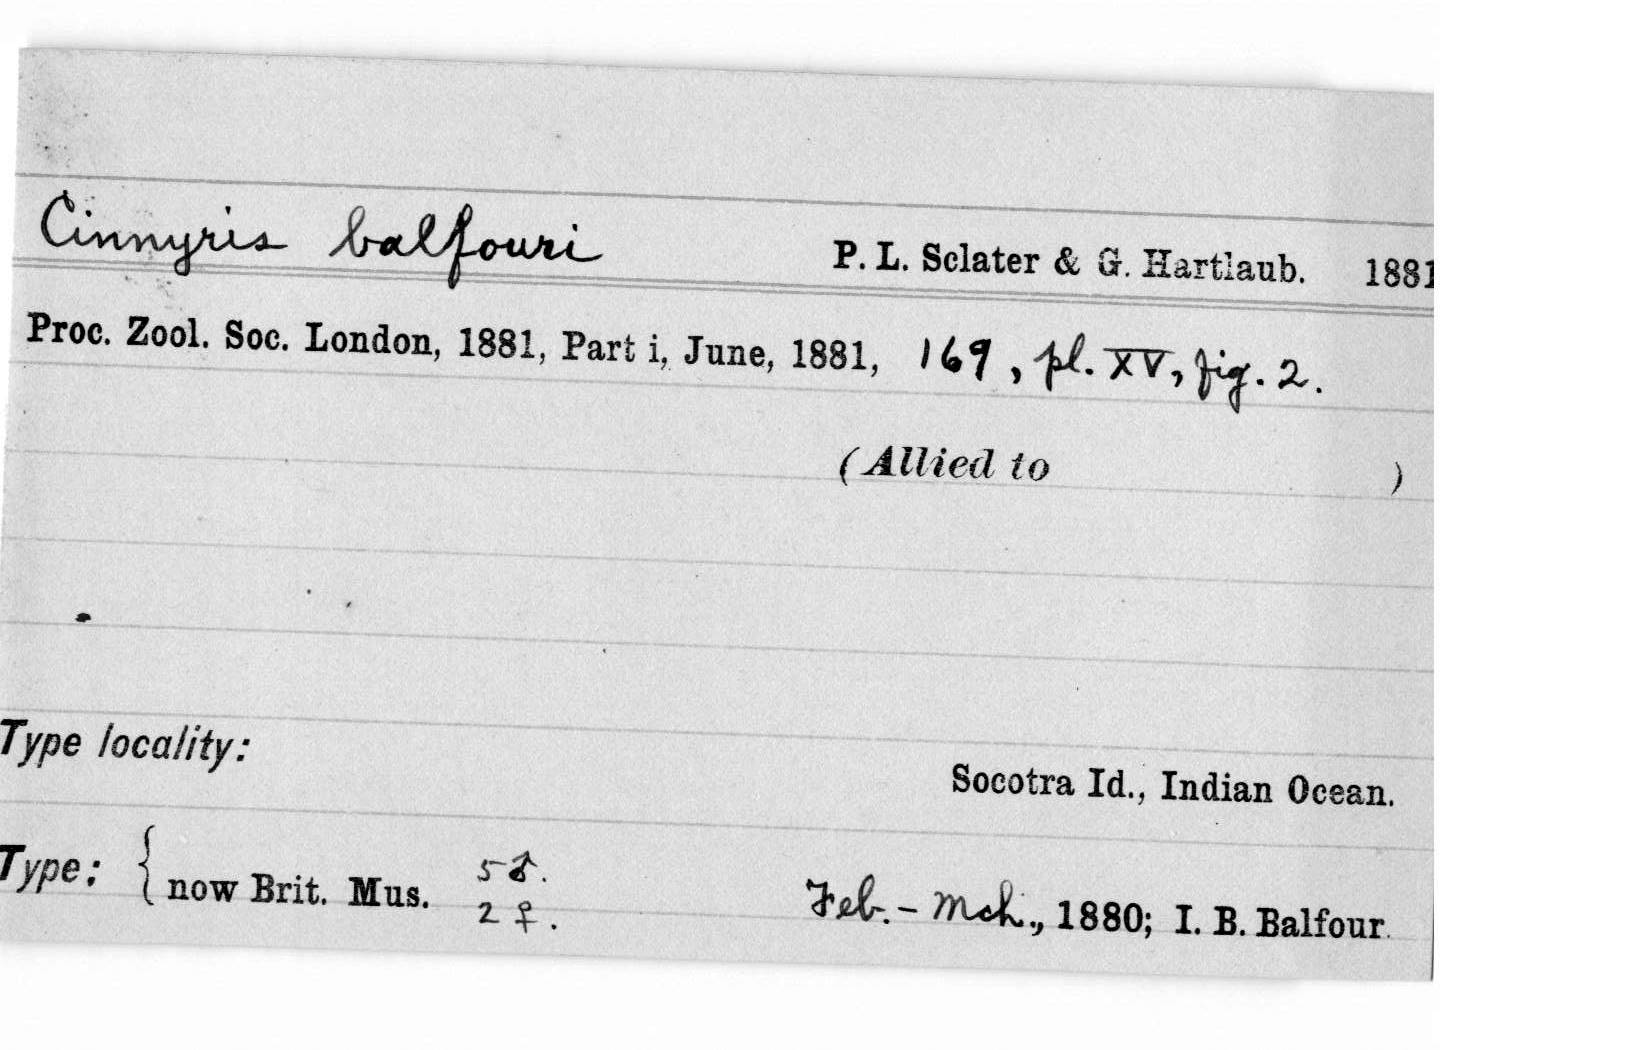 Cinnyris balfouri P. L. Sclater & G. Hartlaub. 1881
Proc. Zool. Soc. London, 1881, Part i, June, 1881, 169, pl. XV, fig. 2.
(Allied to )
Type locality:
Socotra Id., Indian Ocean.
Type: { now Brit. Mus. 5 ♂. Feb. - Mch., 1880; I. B. Balfour.
2 ♀.